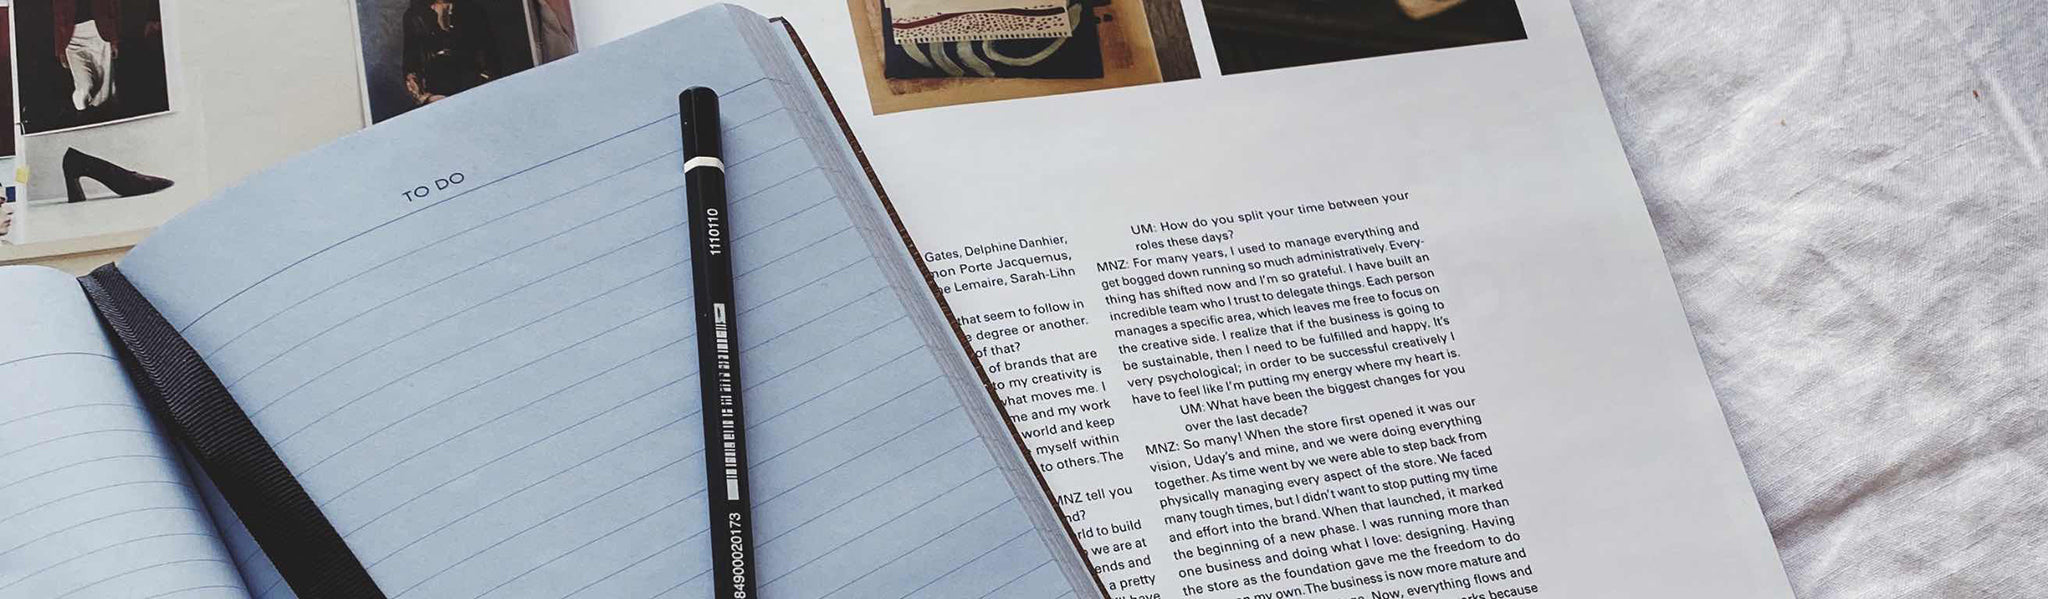 TO DO
1110110
84900020173
Gates, Delphine Danhier,
Porte Jacquemus,
Lemaire, Sarah-Lihn
that seem to follow in
degree or another.
of that?
of brands that are
to my creativity is
what moves me. I
me and my work
world and keep
myself within
to others. The
MNZ tell you
to build
we are at
and
a pretty
have
UM: How do you split your time between your
roles these days?
MNZ: For many years, I used to manage everything and
get bogged down running so much administratively. Every-
thing has shifted now and I'm so grateful. I have built an
incredible team who I trust to delegate things. Each person
manages a specific area, which leaves me free to focus on
the creative side. I realize that if the business is going to
be sustainable, then I need to be fulfilled and happy. It's
very psychological; in order to be successful creatively I
have to feel like I'm putting my energy where my heart is.
UM: What have been the biggest changes for you
over the last decade?
MNZ: So many! When the store first opened it was our
vision, Uday's and mine, and we were doing everything
together. As time went by we were able to step back from
physically managing every aspect of the store. We faced
many tough times, but I didn't want to stop putting my time
and effort into the brand. When that launched, it marked
the beginning of a new phase. I was running more than
one business and doing what I love: designing. Having
the store as the foundation gave me the freedom to do
my own. The business is now more mature and
Now, everything flows and
because